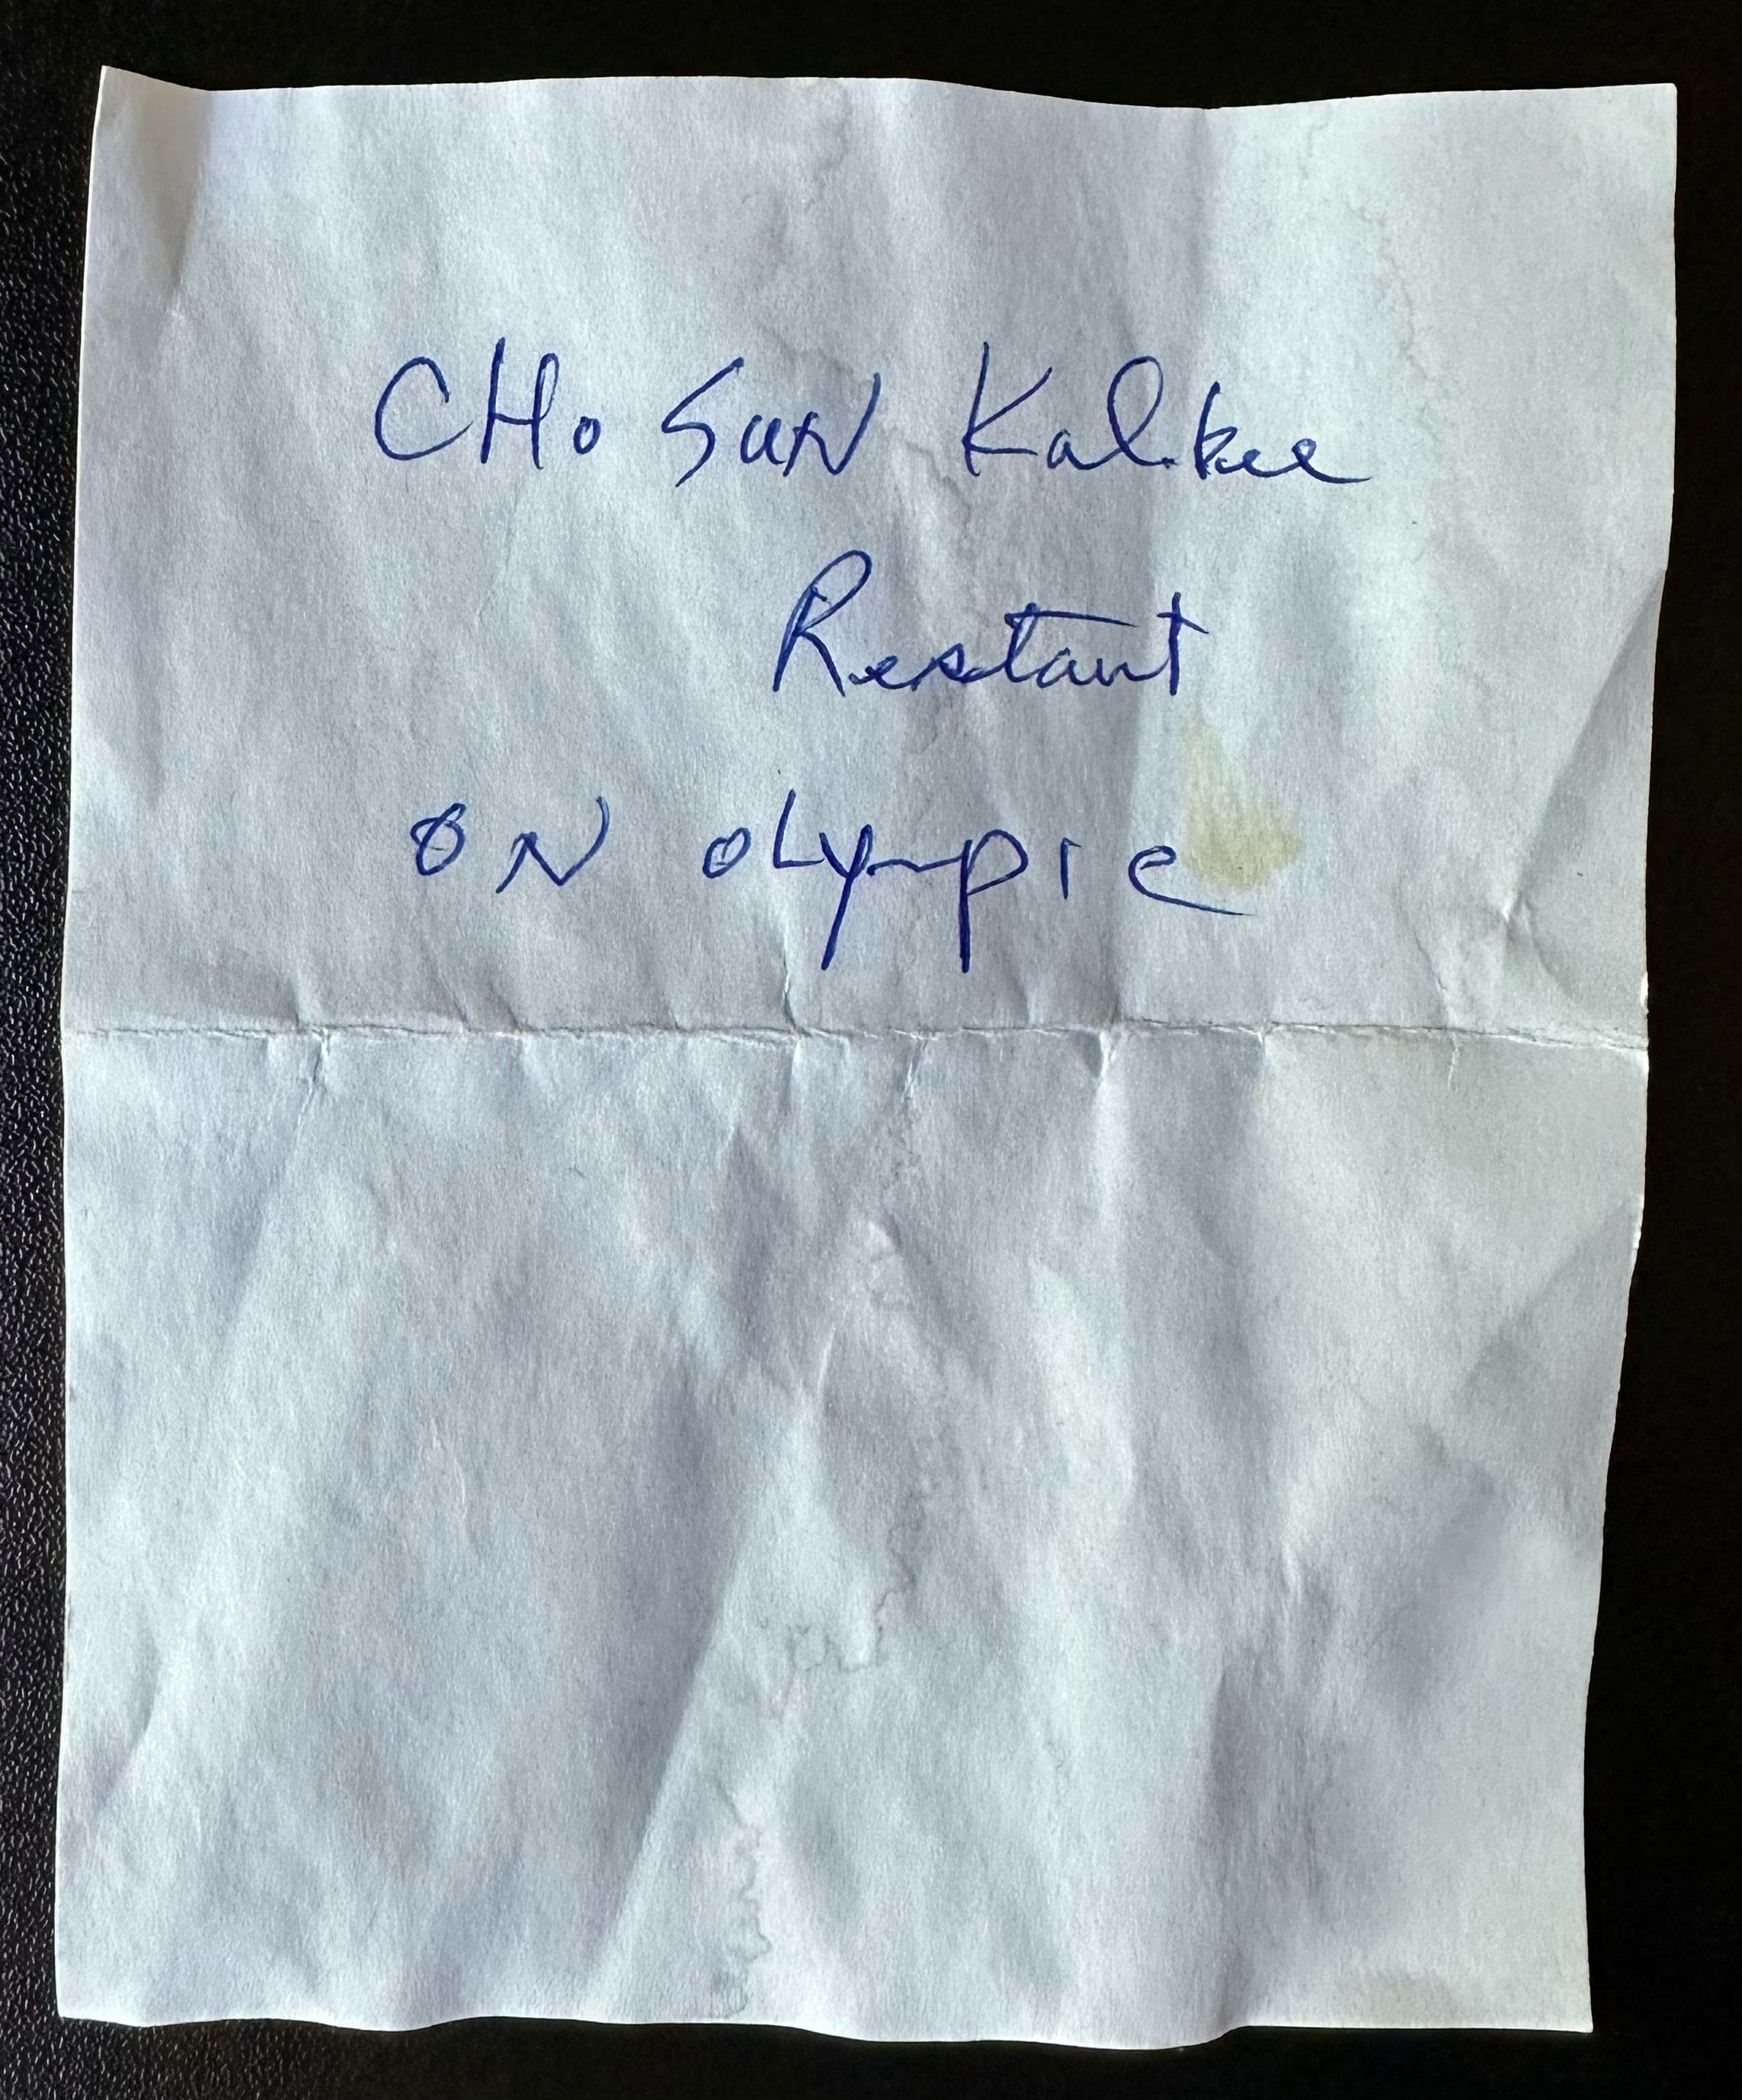 CHo SuN Kalbee
Restant
ON oLympic